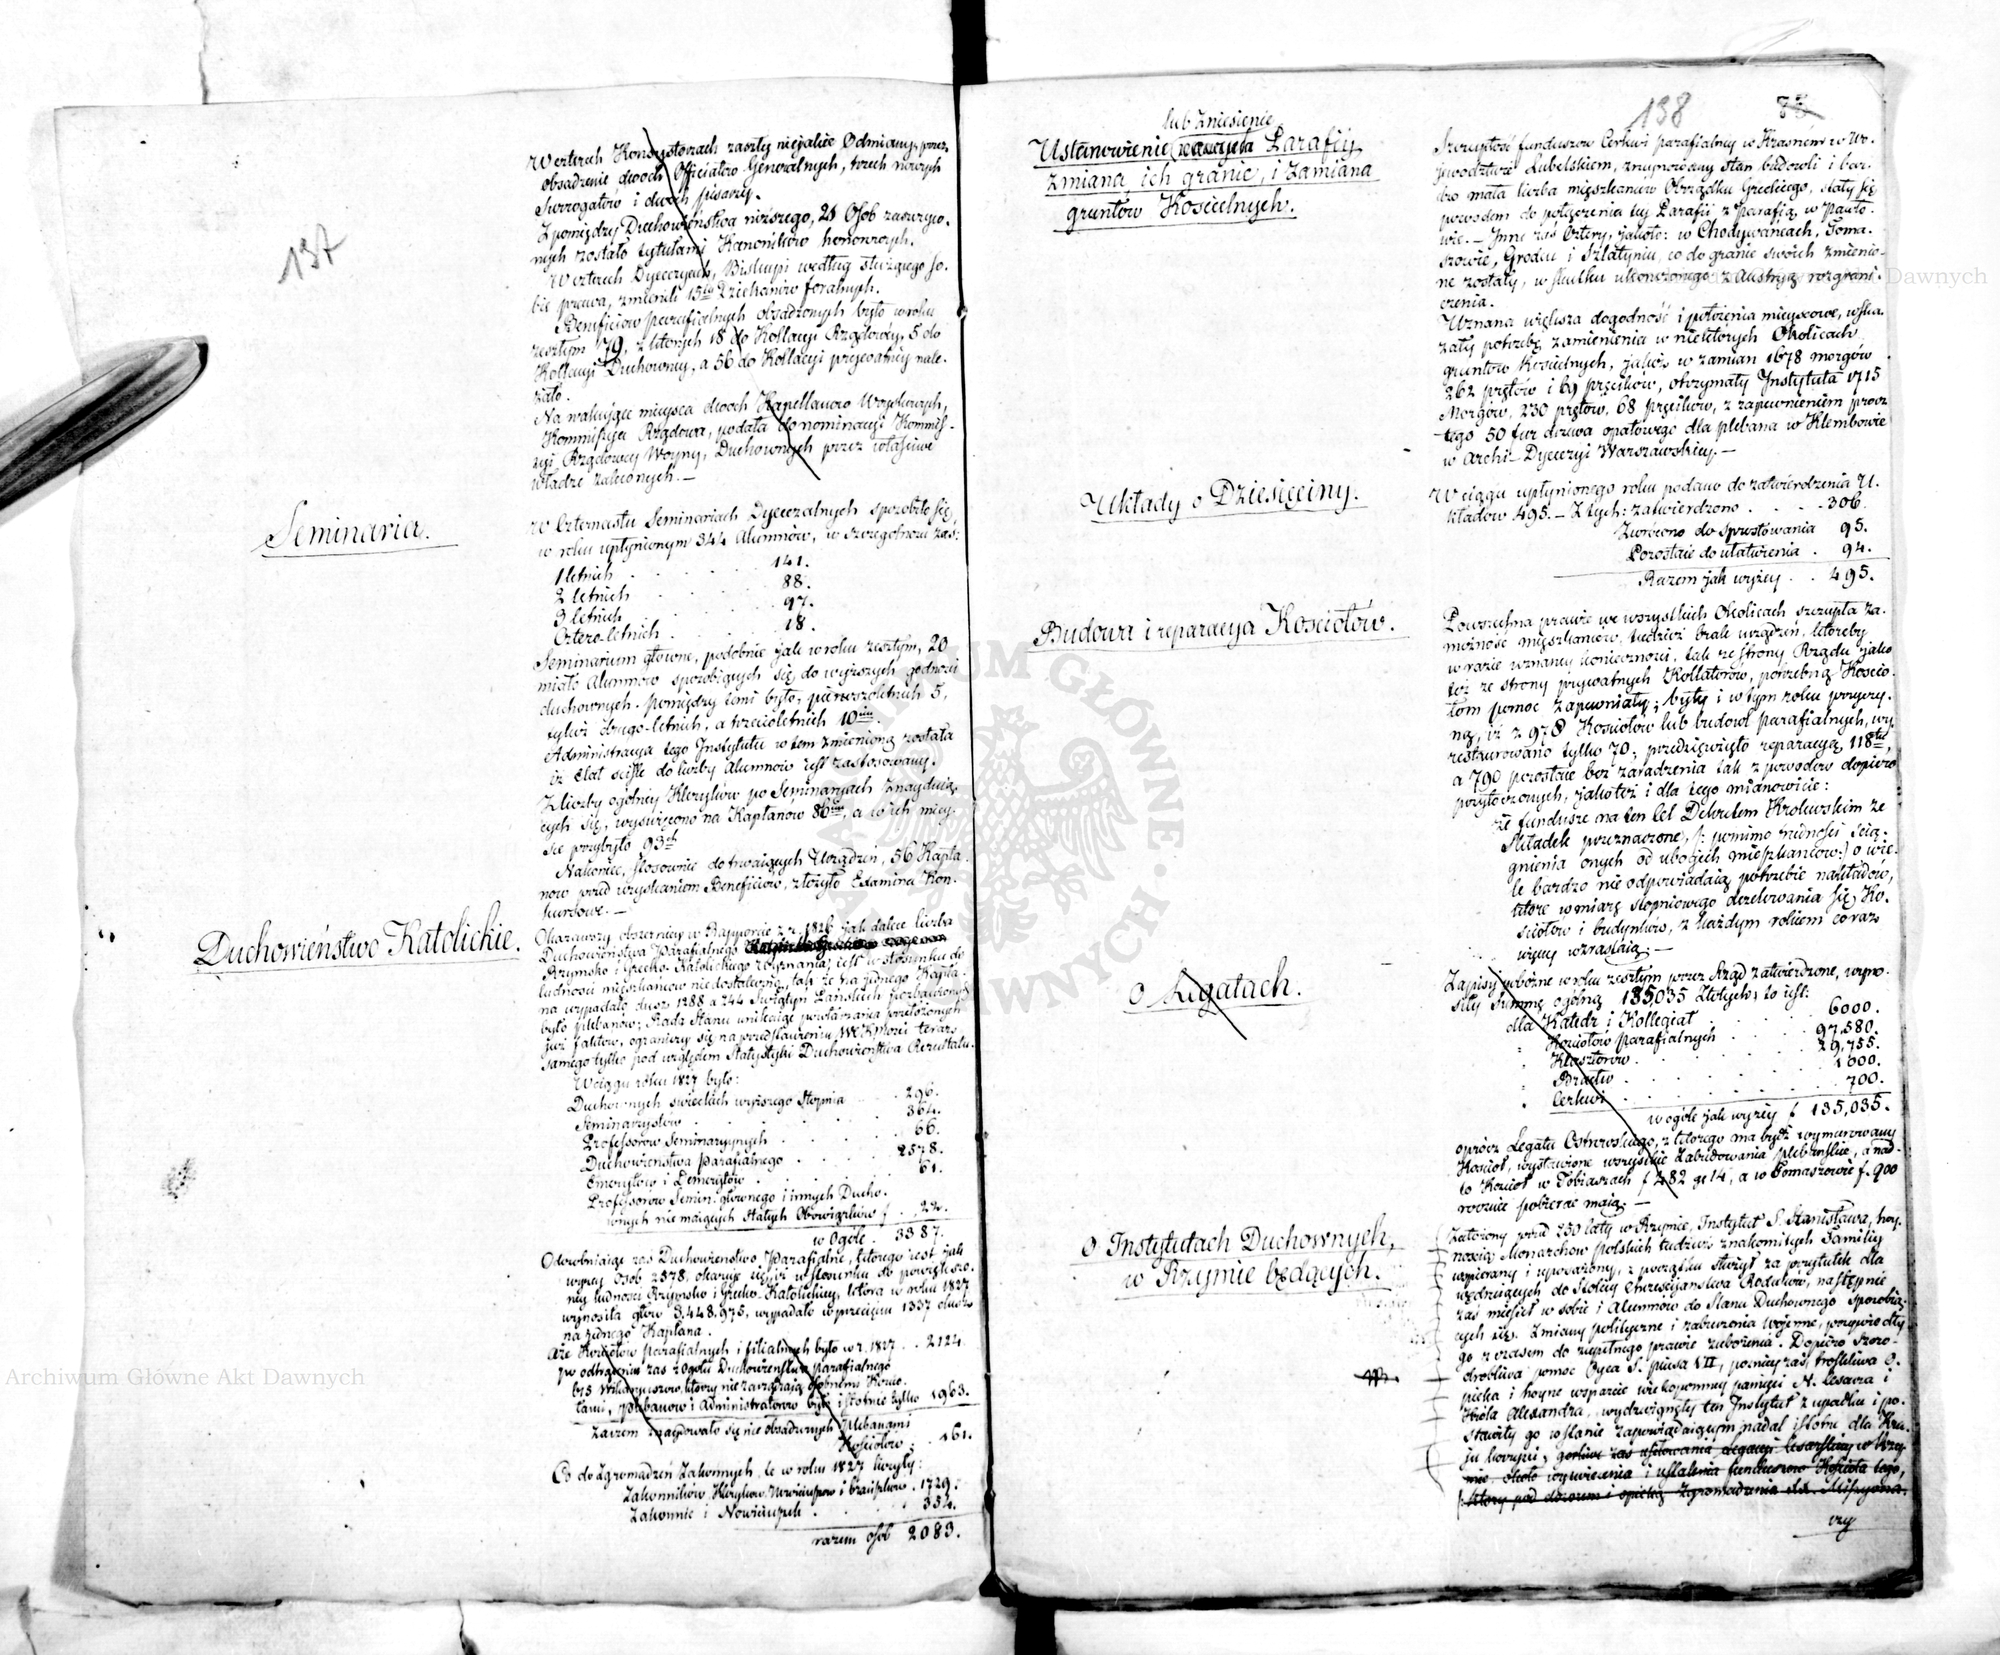 137
W czterech Konsystorzach zaszły niejakie Odmiany, przez
obsadzenie dwóch Officiałów Generalnych, trzech nowych
Surrogatów i dwóch pisarzy.
Z pomiędzy Duchowieństwa niższego, 21 Osób zaszczyco-
nych zostało tytułami Kanoników honorowych.
W czterech Dyecezyach, Biskupi według służącego so-
bie prawa, zmienili 15tu Dziekanów foralnych.
Beneficiów parafialnych obsadzonych było w roku
zeszłym 79, z których 18 do Kollacyi Rządowéy, 5 do
Kollacyi Duchowney, a 56 do Kollacyi prywatney nale-
żało.
Na wakujące mieysca dwóch Kapellanów Woyskowych,
Kommissya Rządowa, podała do nominacyi Kommis-
syi Rządowey Woyny, Duchownych przez właściwe
władze zaleconych. —
Seminaria.
W Czternastu Seminariach Dyecezalnych sposobiło się,
w roku upłynionym 344 Alumnów, w szczególności zaś:
1 letnich . . . . 141.
2 letnich . . . . 88.
3 letnich . . . . 97.
Cztero-letnich . . . 18.
Seminarium główne, podobnie jak w roku zeszłym, 20
miało Alumnów sposobiących się do wyższych godności
duchownych. pomiędzy temi było, pierwszoletnich 5,
tyluż drugo-letnich, a trzecioletnich 10ciu.
Administracya tego Instytutu w tem zmienioną została
iż Etat ściśle do liczby Alumnów jest zastosowany.
Z liczby ogólney Kleryków po Seminaryach znayduią-
cych się, wyświęcono na Kapłanów 86ciu, a w ich miey-
sce przybyło 93ch
Nakoniec, stosownie do trwaiących Urządzeń, 56 Kapła-
nów przed uzyskaniem Beneficiów, złożyło Examina Kon-
kursowe. —
Duchowieństwo Katolickie.
Okazawszy obszerniey w Rapporcie z r. 1826 jak dalece liczba
Duchowieństwa Parafialnego
Rzymsko i Grecko-Katolickiego wyznania, jest w stosunku do
ludności mieszkańców niedostateczną, tak że na jednego Kapła-
na wypadało dusz 1288 a 244 Świątyń Pańskich pozbawionych
było plebanów; Rada Stanu unikaiąc powtarzania przełożonych
już faktów, ograniczy się na przedstawieniu WKMości teraz
samego tylko pod względem Statystyki Duchowieństwa Rezultatu.
W ciągu roku 1827 było:
Duchownych świeckich wyższego Stopnia . . 296.
Seminarzystów . . . . 364.
Professorów Seminaryynych . . . 66.
Duchowieństwa Parafialnego . . . 2578.
Emerytów i Demerytów . . . . 61.
Professorów Semin: głównego i innych Ducho-
wnych nie maiących stałych Obowiązków . . 22.
w Ogóle . 3387.
Odrobniaiąc zaś Duchowieństwo Parafialne, którego jest jak
wyżey Osób 2578, okazuie się, iż w stosunku do powiększo-
ney ludności Rzymsko i Grecko-Katolickiey, która w roku 1827
wynosiła głów 3,448,975, wypadało w przecięciu 1337 dusz
na jednego Kapłana.
Że Kościołów parafialnych i filialnych było w r. 1827 . . 2124.
po odtrąceniu zaś z ogółu Duchowieństwa parafialnego
615 Wikaryuszów, którzy nie zarządzaią osobnemi Kościo-
łami, Plebanów i Administratorów było istotnie tylko 1963.
Zatem znaydowało się nie obsadzonych Plebanami
Kościołów . . 161.
Co do Zgromadzeń Zakonnych, te w roku 1827 liczyły:
Zakonników Kleryków, Nowiciuszów i braciszków . 1729.
Zakonnic i Nowiciuszek . . . . 354.
razem osób 2083.
138
lub zniesienie
Ustanowienie Parafiy
zmiana ich granic, i zamiana
gruntów Kościelnych.
Szczupłość funduszów Cerkwi parafialney w Krasném w Wo-
jewództwie Lubelskiem, zruynowany stan budowli i bar-
dzo mała liczba mieszkańców Obrządku Greckiego, stały się
powodem do połączenia tey Parafii z Parafią w Pawło-
wie. — Inne zaś Cztery, jakoto: w Chodywańcach, Toma-
szowie, Grodku i Szlatynie, co do granic swoich zmienio-
ne zostały, w skutku ukończonego z Austryą rozgrani-
czenia.
Uznana większa dogodność i położenia mieyscowe, wska-
zały potrzebę zamienienia w niektórych Okolicach
gruntów Kościelnych, jakoż w zamian 1678 morgów
262 prętów i 69 pręcików, otrzymały Instytuta 1715
Morgów, 230 prętów, 68 pręcików, z zapewnieniem prócz
tego 50 fur drzewa opałowego dla plebana w Klembowie
w Archi-Dyecezyi Warszawskiey. —
Układy o Dziesięciny.
W ciągu upłynionego roku podano do zatwierdzenia U-
kładów 495. — Z tych: zatwierdzono . . . . 306.
Zwrócono do sprostowania 95.
Pozostaie do ułatwienia . 94.
Razem jak wyżey . . 495.
Budowa i reparacya Kościołów.
Powszechna prawie we wszystkich Okolicach szczupła za-
możność mieszkańców, tudzież brak urządzeń, któreby
w razie uznaney konieczności, tak ze strony Rządu jako
też ze strony prywatnych Kollatorów, potrzebną Kościo-
łom pomoc zapewniały; były i w tym roku przyczy-
ną, iż z 978 Kościołów lub budowl parafialnych, wy-
restaurowano tylko 70; przedsięwzięto reparacyą 118tu,
a 790 pozostaie bez zaradzenia tak z powodów dopiero
przytoczonych, jakoteż i dla tego mianowicie:
że fundusze na ten cel Dekretem Królewskim ze
Składek przeznaczone, (: pomimo trudności ścią-
gnienia onych od ubogich mieszkańców:) o wie-
le bardzo nie odpowiadaią potrzebie nakładów,
które w miarę stopniowego dezelowania się Ko-
ściołów i budynków, z każdym rokiem coraz
więcey wzrastaią. —
O Legatach.
Zapisy pobożne w roku zeszłym przez Rząd zatwierdzone, wyno-
siły Summę ogólną 135,035 Złotych; to jest:
dla Katedr i Kollegiat . . . . 6000.
" Kościołów parafialnych . . . 97,580.
" Klasztorów . . . . 29,755.
" Bractw . . . . 1000.
" Cerkwi . . . . 700.
w ogóle jak wyżey f 135,035.
oprócz Legatu Ostrowskiego, z którego ma bydź wymurowany
Kościoł, wystawione wszystkie Zabudowania plebańskie, a nad-
to Kościoł w Tobiaszach f 482 gr 14, a w Tomaszowie f. 900
rocznie pobierać maią. —
O Instytutach Duchownych,
w Rzymie będących.
Założony przed 250 laty w Rzymie, Instytut S. Stanisława, hoy-
nością Monarchów Polskich tudzież znakomitych Familiy
wspierany i uposażony, z początku służył za przytułek dla
wędruiących do Stolicy Chrześcijaństwa Rodaków, następnie
zaś mieścił w sobie i Alumnów do Stanu Duchownego sposobią-
cych się. Zmiany polityczne i zaburzenia woienne, przywiodły
go z czasem do zupełnego prawie zubożenia. Dopiero szczo-
drobliwa pomoc Oyca S. Piusa VII, późniey zaś troskliwa O-
pieka i hoyne wsparcie wiekopomney pamięci N. Cesarza i
Króla Alexandra, wydźwignęły ten Instytut z upadku i po-
stawiły go w stanie zapowiadaiącym nadal istotne dla Kra-
ju korzyści, gorliwe zaś usiłowania Legacyi Cesarskiey w Rzy-
mie około wyświecenia i ustalenia funduszów Kościoła tego,
który pod dozorem i opieką Zgromadzenia XX. Missyona-
rzy
Archiwum Główne Akt Dawnych